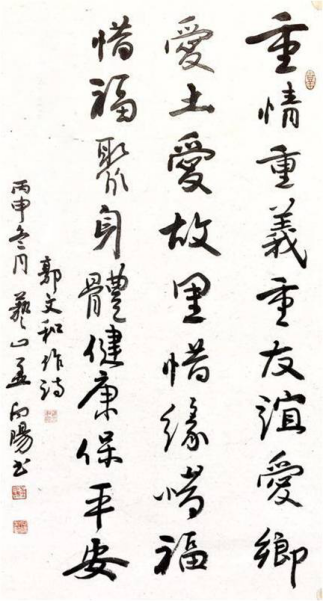 重情重義重友誼愛鄉
愛土愛故里惜緣惜福
惜福聚身體健康保平安
郭文和作詩
丙申冬月 山孟向陽书